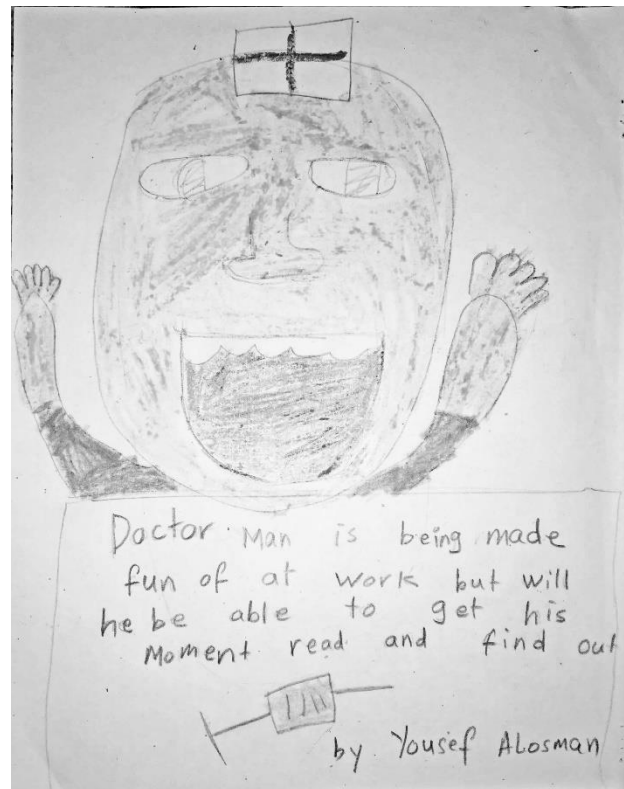 Doctor Man is being made
fun of at work but will
he be able to get his
Moment read and find out
by Yousef Alosman